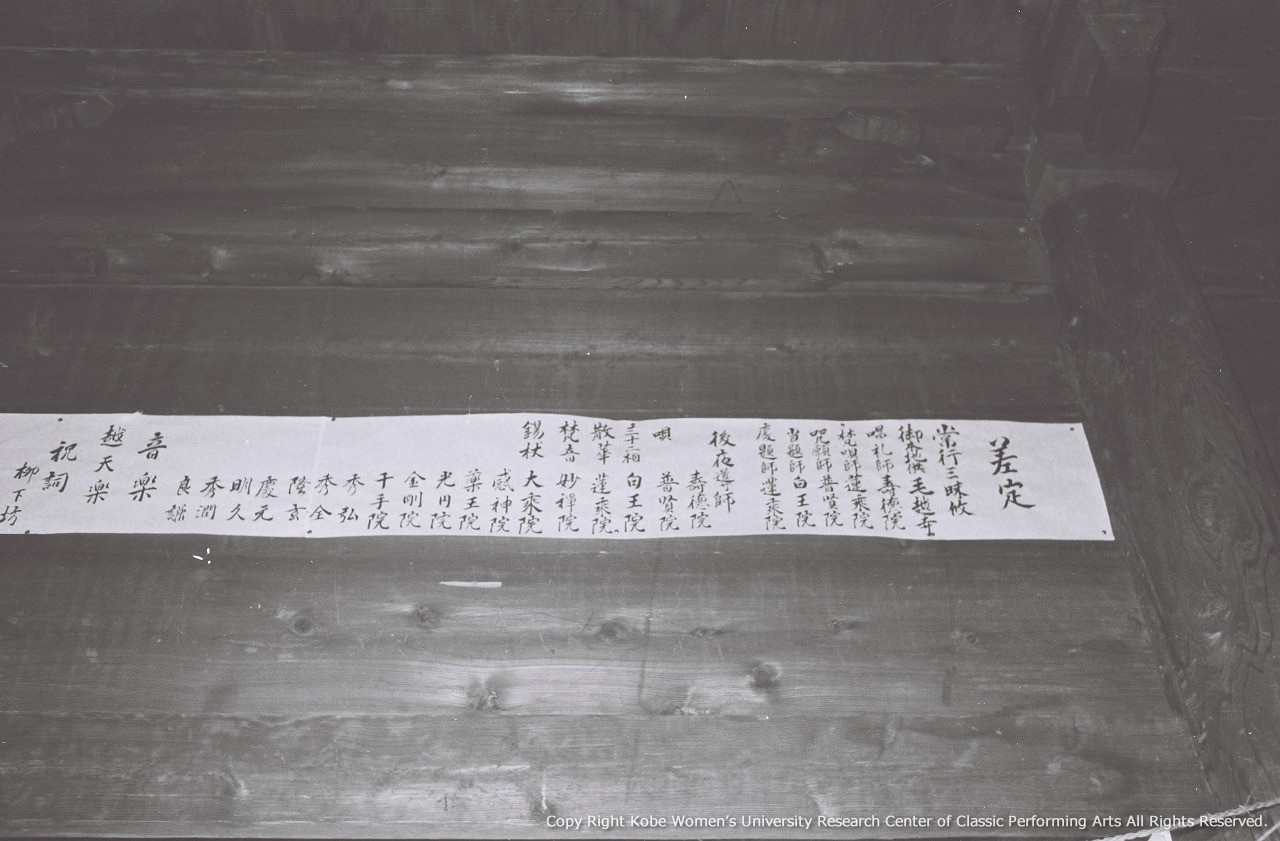 差定
常行三昧攸
御共楽毛越寺
唱礼師壽德院
梵唄師蓮乘院
咒願師普賢院
当題師白王院
慶題師蓮乘院
後夜導師
壽德院
唄 普賢院
三十二相 白王院
散華 蓮乘院
梵音 妙禅院
錫杖 大乘院
感神院
藥王院
光円院
金剛院
千手院
秀弘
秀全
隆玄
慶元
明久
秀潤
良謙
音楽
越天楽
祝詞
柳下坊
Copy Right Kobe Women's University Research Center of Classic Performing Arts All Rights Reserved.